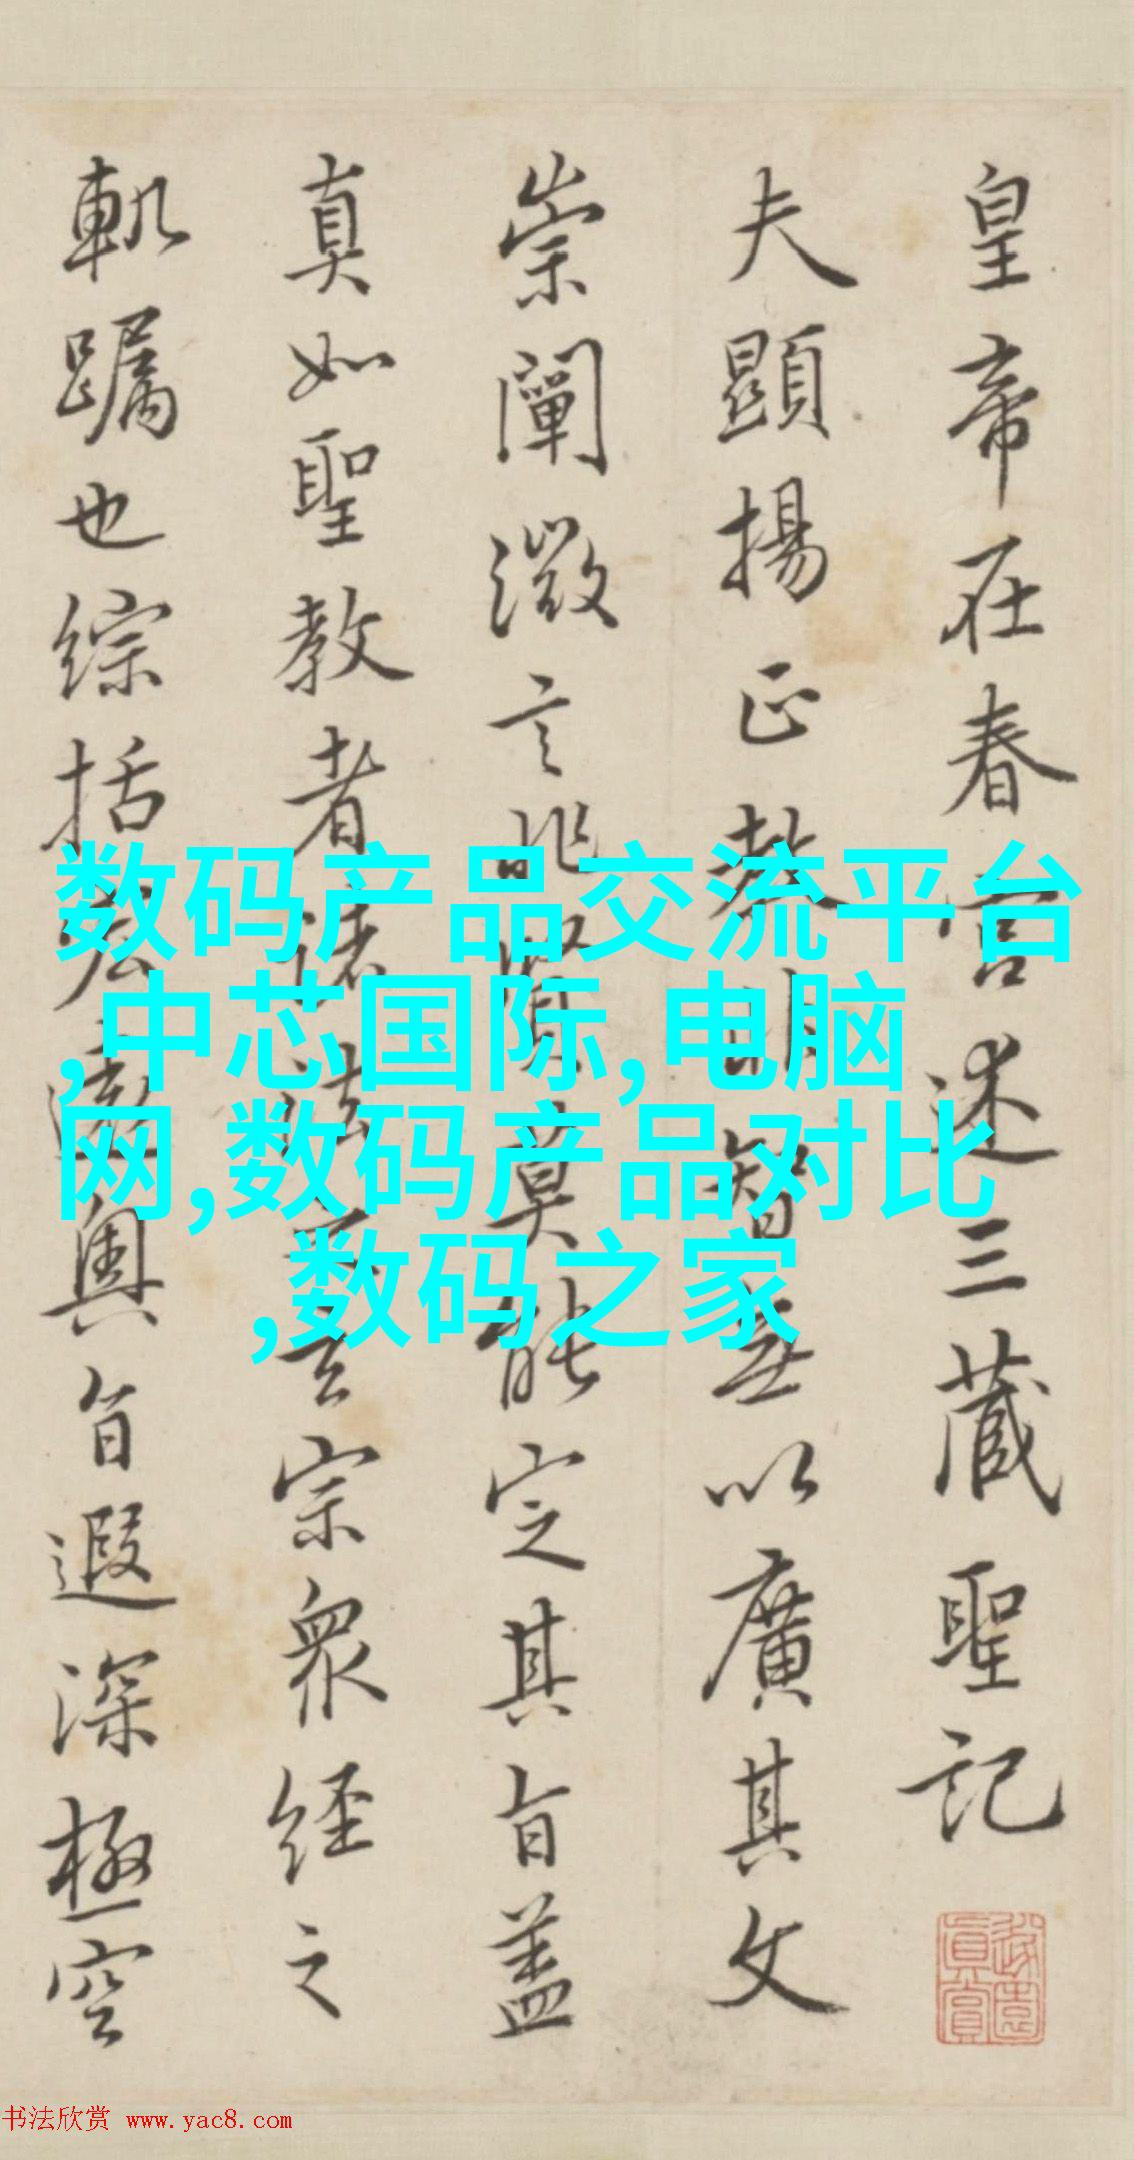 皇帝在春宮述三藏聖記
夫顯揚正教非智無以廣其文
崇闡微言非賢莫能定其旨蓋
真如聖教者諸法之玄宗眾經之
軌躅也綜括宏遠奧旨遐深極空
数码产品交流平台
,中芯国际,电脑
网,数码产品对比
,数码之家
书法欣赏 www.yac8.com